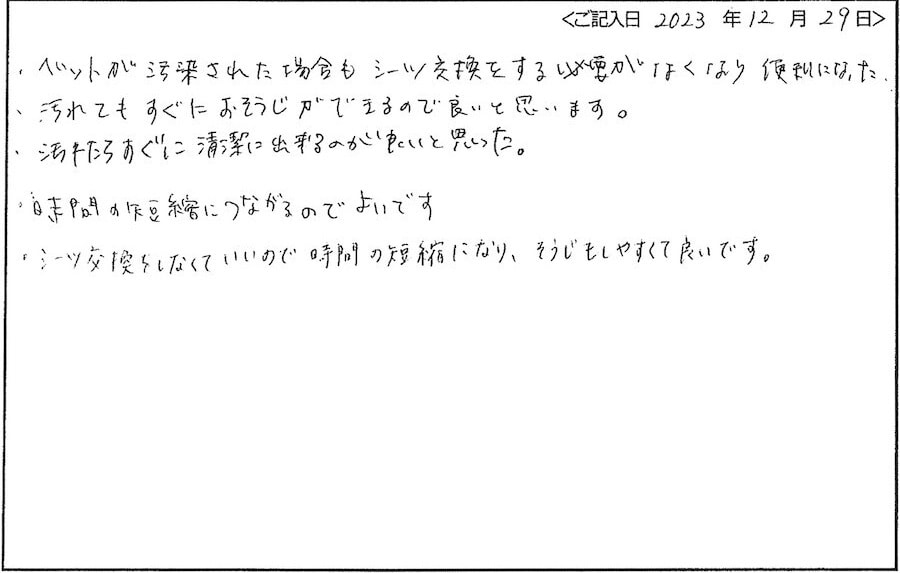 <ご記入日 2023 年 12 月 29日>
・ベットが汚染された場合も シーツ交換をする必要がなくなり 便利になった。
・汚れても すぐに おそうじができるので良いと思います。
・汚れたらすぐに 清潔に出来るのが良いと思った。
・時間の短縮につながるのでよいです
・シーツ交換をしなくていいので 時間の短縮になり、そうじもしやすくて良いです。